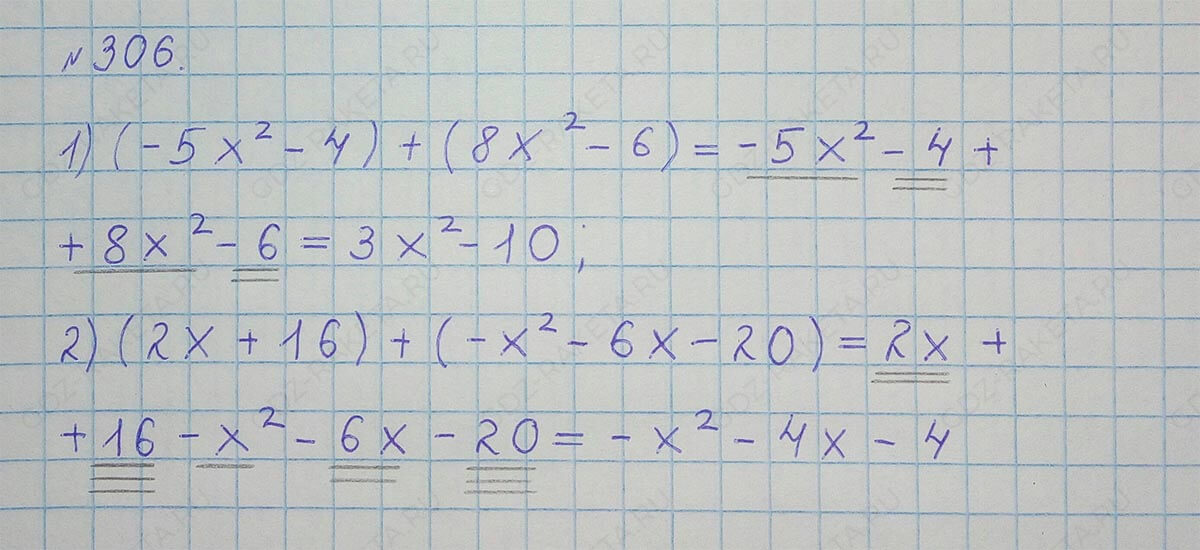 №306.
1) (-5x² - 4) + (8x² - 6) = -5x² - 4 +
+ 8x² - 6 = 3x² - 10;
2) (2x + 16) + (-x² - 6x - 20) = 2x +
+ 16 - x² - 6x - 20 = -x² - 4x - 4